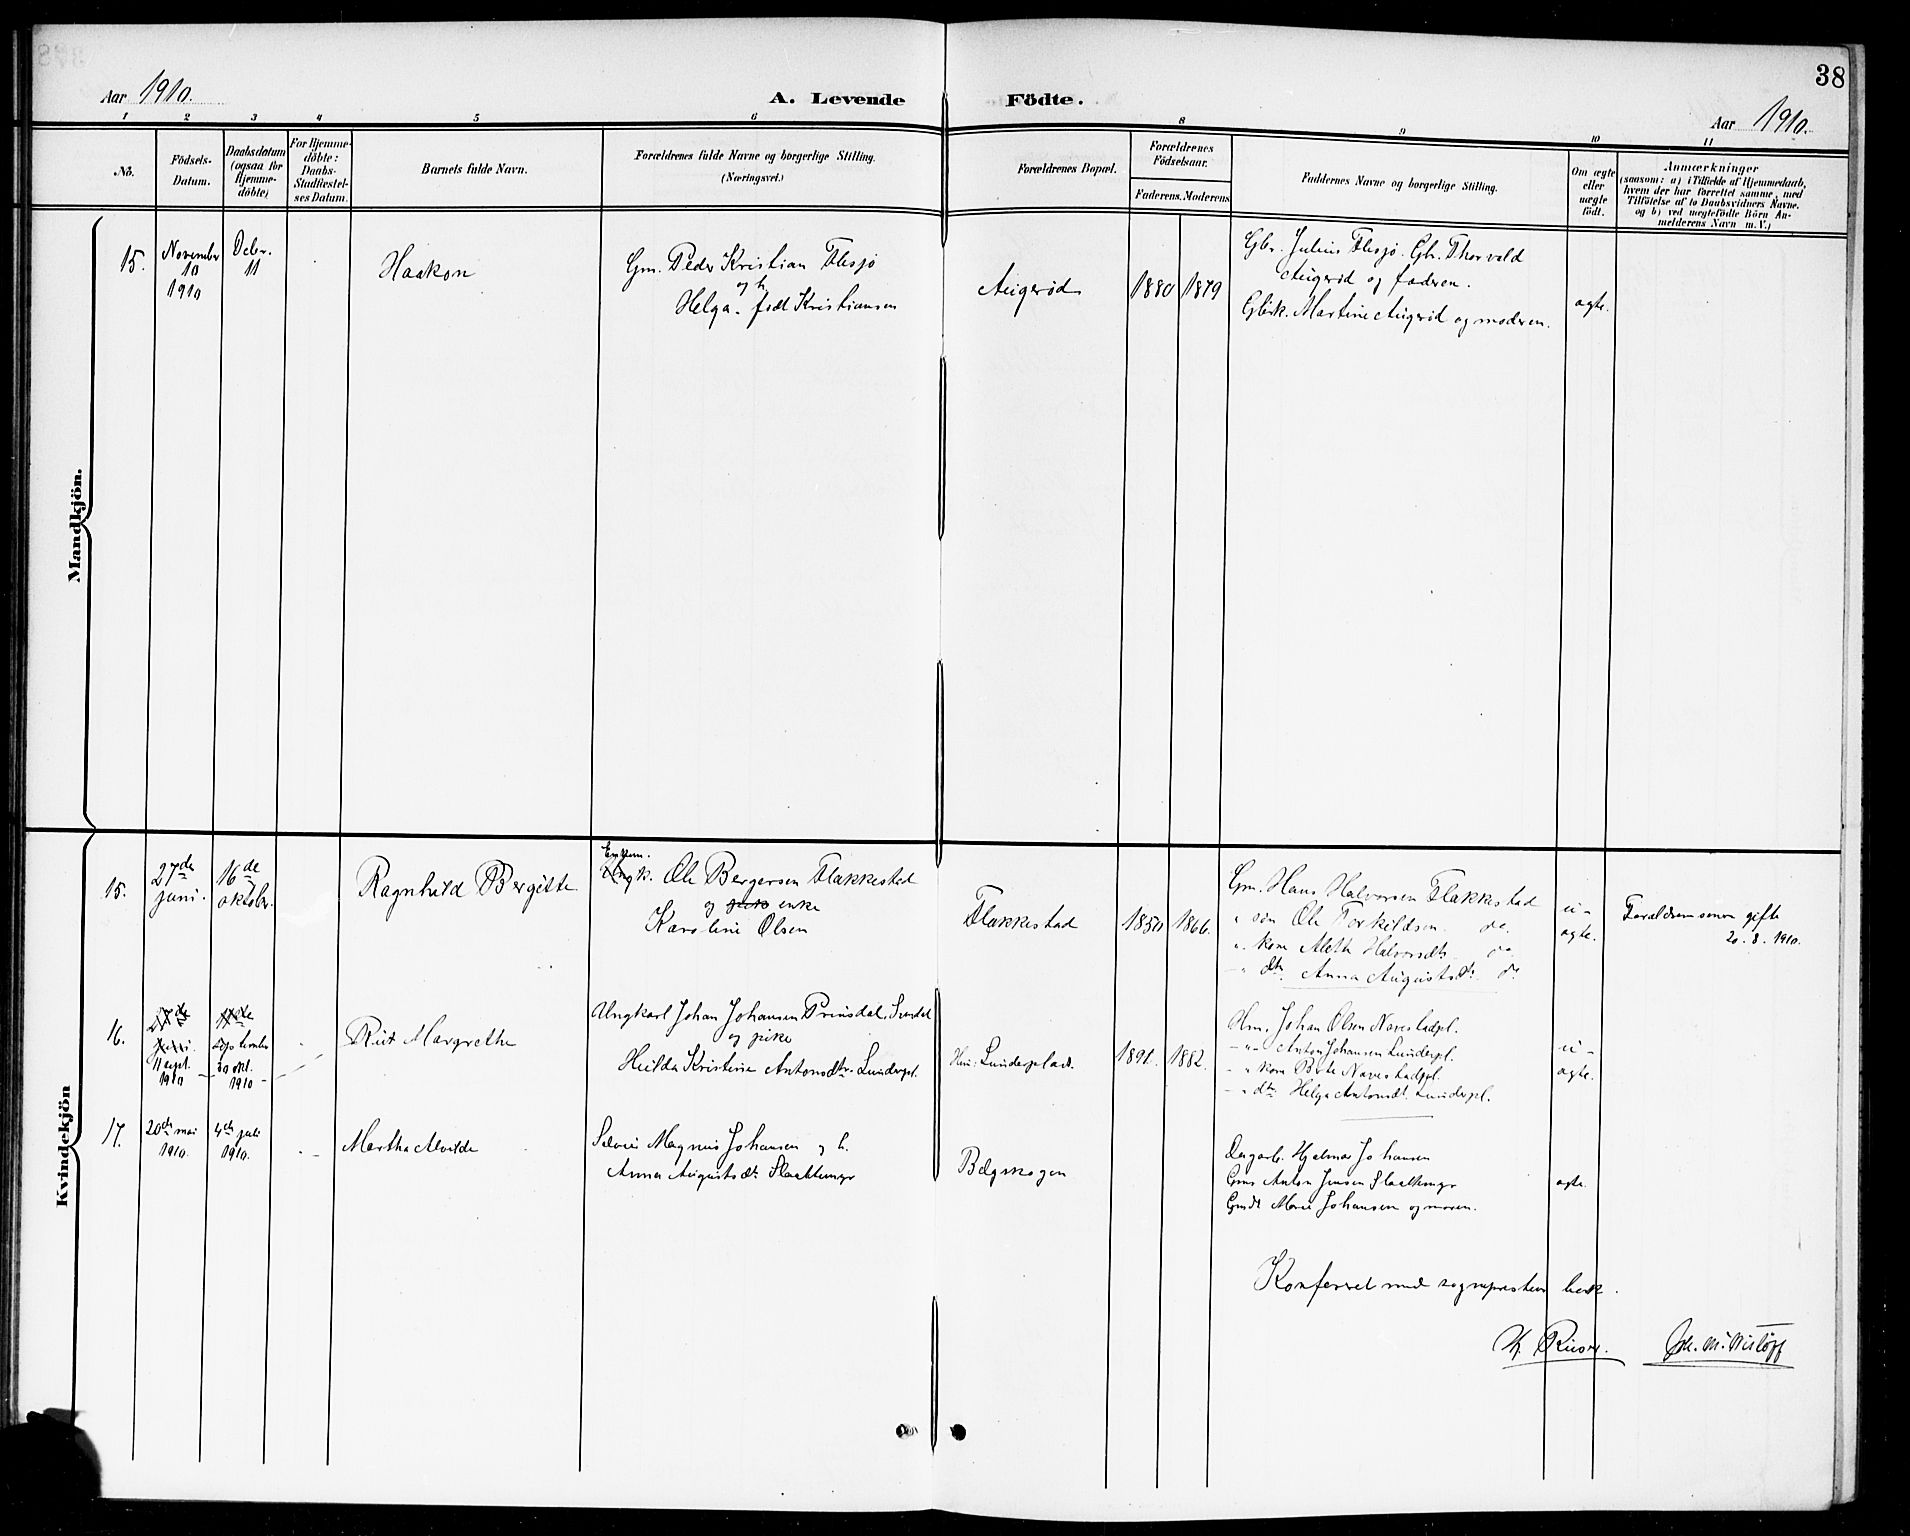 38
Aar 1910.
A. Levende Födte.
Aar 1910.
1 2 3 4 5 6 8 9 10 11
No.
Födsels-
Datum.
Daabsdatum
(ogsaa for
Hjemme-
döbte)
For Hjemme-
döbte:
Daabs-
Stadfæstel-
ses Datum.
Barnets fulde Navn.
Forældrenes fulde Navne og borgerlige Stilling.
(Næringsvei.)
Forældrenes Bopæl.
Forældrenes
Födselsaar.
Faderens. Moderens
Faddernes Navne og borgerlige Stilling.
Om ægte
eller
uægte
födt.
Anmærkninger
(saasom: a) i Tilfælde af Hjemmedaab,
hvem der har forrettet samme, med
Tilföielse af to Daabsvidners Navne.
og b) ved uægtefödte Börn An-
melderens Navn m. V.)
Mandkjön.
15.
November
10
1910
Decbr.
11
Haakon
Gm. Peder Kristian Flesjø
og h.
Helga. født Kristiansen
Augerød
1880 1879
Gbr. Julius Flesjø. Gbr. Thorvald
Augerød og faderen.
Gbrk. Martine Augerød og moderen.
ægte.
Kvindekjön
15.
27de
juni.
16de
oktober.
Ragnhild Bergitte
Enkem.
Ungk. Ole Bergersen Flakkestad
og pike enke
Karoline Olsen
Flakkestad
1850 1866.
Gm. Hans Halvorsen Flakkestad
" søn Ole Torkildsen do.
" kone Aleth Halvorsdtr. do
" dtr. Anna Augustsdtr. do
u-
ægte.
Forældrene senere gifte
20. 8. 1910.
16.
27de
juni.
11 sept.
1910
11te
september
30 okt.
1910
Rut Margrethe
Ungkarl Johan Johansen Prinsdal,
og pike
Hulda Kristine Antonsdtr. Lunderpl.
Lunderplads.
1891. 1882.
Hm. Johan Olsen Navestadpl.
-"- Anton Johansen Lunderpl.
-" kone Navestadpl.
-" dtr. Helga Antonsdtr. Lunderpl.
u-
ægte.
17.
20de mai
1910.
4de juli
1910.
Martha Alvilde
Magnus Johansen og h.
Anna Augustsdtr.
Bøgskogen
Hjalmar Johansen
Anton Jensen
Marie Johansen og moren.
ægte.
Konferert med sogneprestens bok.